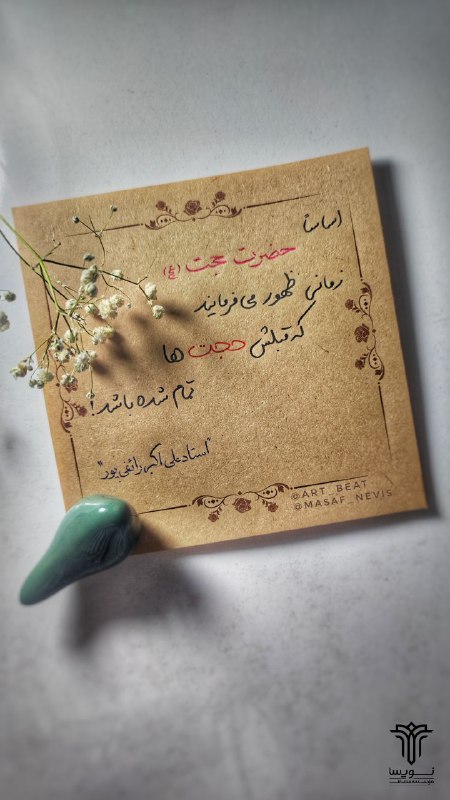 اساساً
حضرت حجت (عج)
زمانی ظهور می‌فرمایند
که قبلش حجت ها
تمام شده باشد!
"استاد علی اکبر رائفی پور"
@ART_BEAT
@MASAF_NEVIS
نویسا